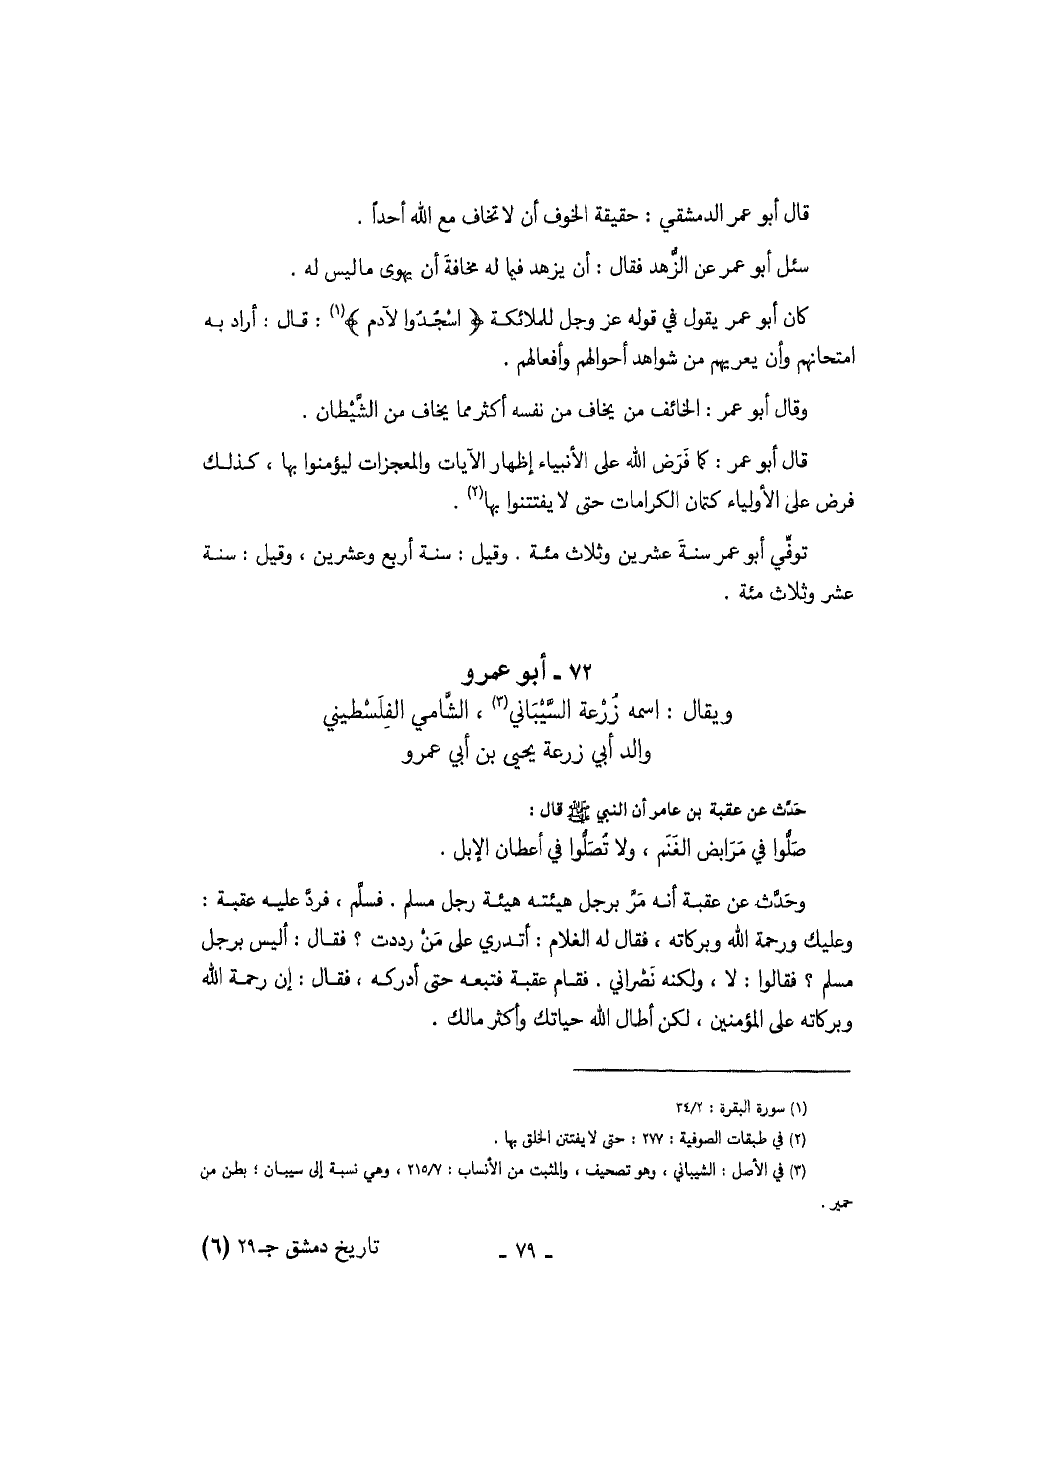 قال أبو عمر الدمشقي : حقيقة الخوف أن لا تخاف مع الله أحداً .
سئل أبو عمر عن الزُّهد فقال : أن يزهد فيما له مخافةَ أن يهوى ما ليس له .
كان أبو عمر يقول في قوله عز وجل للملائكة ﴿ اسْجُدُوا لآدم ﴾(١) : قال : أراد به
امتحانهم وأن يعريهم من شواهد أحوالهم وأفعالهم .
وقال أبو عمر : الخائف من يخاف من نفسه أكثر مما يخاف من الشَّيْطان .
قال أبو عمر : كما فَرَض الله على الأنبياء إظهار الآيات والمعجزات ليؤمنوا بها ، كذلك
فرض على الأولياء كتمان الكرامات حتى لا يفتتنوا بها(٢) .
توفِّي أبو عمر سنةَ عشرين وثلاث مئة . وقيل : سنة أربع وعشرين ، وقيل : سنة
عشر وثلاث مئة .
٧٢ ـ أبو عمرو
ويقال : اسمه زُرْعة السَّيْبَاني(٣) ، الشَّامي الفِلَسْطيني
والد أبي زرعة يحيى بن أبي عمرو
حَدَّث عن عقبة بن عامر أن النبي ﷺ قال :
صَلُّوا في مَرَابض الغَنَم ، ولا تُصَلُّوا في أعطان الإبل .
وحَدَّث عن عقبة أنه مَرَّ برجل هيئته هيئة رجل مسلم . فسلَّم ، فردَّ عليه عقبة :
وعليك ورحمة الله وبركاته ، فقال له الغلام : أتدري على مَنْ رددت ؟ فقال : أليس برجل
مسلم ؟ فقالوا : لا ، ولكنه نَصْراني . فقام عقبة فتبعه حتى أدركه ، فقال : إن رحمة الله
وبركاته على المؤمنين ، لكن أطال الله حياتك وأكثر مالك .
(١) سورة البقرة : ٣٤/٢
(٢) في طبقات الصوفية : ٢٧٧ : حتى لا يفتتن الخلق بها .
(٣) في الأصل : الشيباني ، وهو تصحيف ، والمثبت من الأنساب : ٢١٥/٧ ، وهي نسبة إلى سيبان ؛ بطن من
حمير .
ـ ٧٩ ـ
تاريخ دمشق جـ٢٩ (٦)